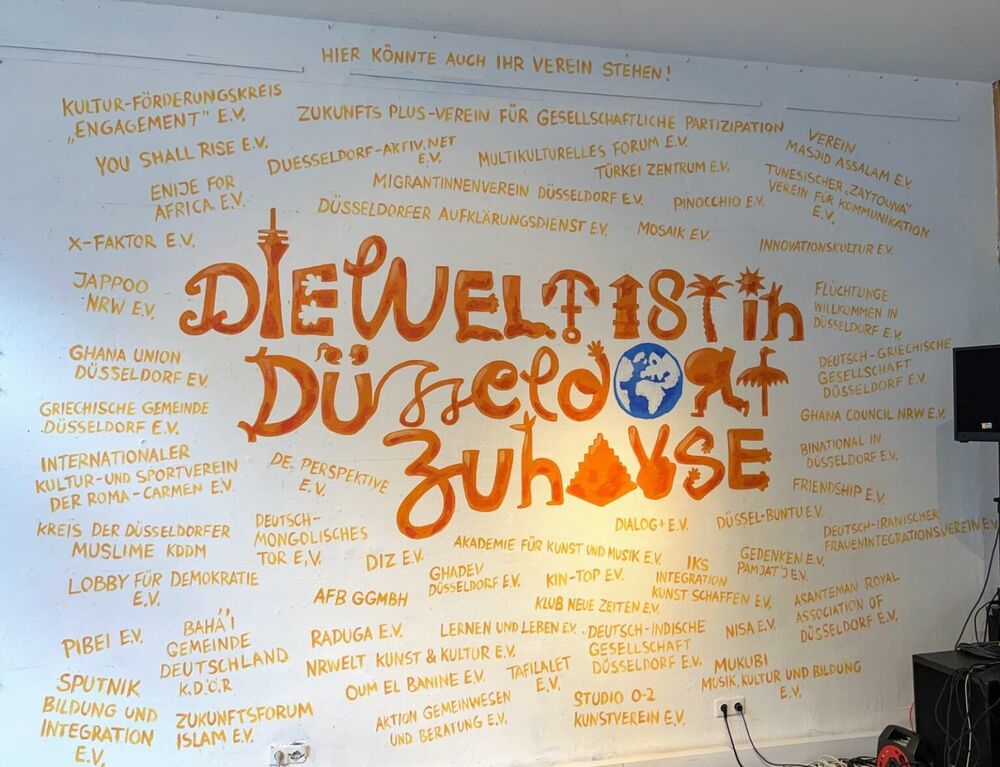 HIER KÖNNTE AUCH IHR VEREIN STEHEN!
KULTUR-FÖRDERUNGSKREIS
„ENGAGEMENT" E.V.
ZUKUNFTS PLUS-VEREIN FÜR GESELLSCHAFTLICHE PARTIZIPATION
VEREIN
MASJID ASSALAM E.V.
YOU SHALL RISE E.V.
DUESSELDORF-AKTIV.NET
E.V.
MULTIKULTURELLES FORUM E.V.
TÜRKEI ZENTRUM E.V.
TUNESISCHER „ZAYTOUNA"
VEREIN FÜR KOMMUNIKATION
E.V.
ENIJE FOR
AFRICA E.V.
MIGRANTINNENVEREIN DÜSSELDORF E.V.
PINOCCHIO E.V.
DÜSSELDORFER AUFKLÄRUNGSDIENST E.V.
MOSAIK E.V.
X-FAKTOR E.V.
INNOVATIONSKULTUR E.V.
DIE WELT IST in
DÜSSELDORF
ZUHAUSE
JAPPOO
NRW E.V.
FLÜCHTLINGE
WILLKOMMEN IN
DÜSSELDORF E.V.
GHANA UNION
DÜSSELDORF E.V.
DEUTSCH-GRIECHISCHE
GESELLSCHAFT
DÜSSELDORF E.V.
GRIECHISCHE GEMEINDE
DÜSSELDORF E.V.
GHANA COUNCIL NRW E.V.
INTERNATIONALER
KULTUR-UND SPORTVEREIN
DER ROMA-CARMEN E.V.
DE. PERSPEKTIVE
E.V.
BINATIONAL IN
DÜSSELDORF E.V.
FRIENDSHIP E.V.
KREIS DER DÜSSELDORFER
MUSLIME KDDM
DEUTSCH-
MONGOLISCHES
TOR E,V.
DIZ E.V.
AKADEMIE FÜR KUNST UND MUSIK E.V.
DIALOG+ E.V.
DÜSSEL-BUNTU E.V.
DEUTSCH-IRANISCHER
FRAUENINTEGRATIONSVEREIN E.V.
LOBBY FÜR DEMOKRATIE
E.V.
AFB GGMBH
GHADEV
DÜSSELDORF E.V.
KIN-TOP E.V.
IKS
INTEGRATION
KUNST SCHAFFEN E.V.
GEDENKEN E.V.
PAMJAT'J E.V.
ASANTEMAN ROYAL
ASSOCIATION OF
DÜSSELDORF E.V.
KLUB NEUE ZEITEN E.V.
PIBEI E.V.
BAHÁ'Í
GEMEINDE
DEUTSCHLAND
K.D.Ö.R
RADUGA E.V.
LERNEN UND LEBEN E.V.
DEUTSCH-INDISCHE
GESELLSCHAFT
DÜSSELDORF E.V.
NISA E.V.
NRWELT KUNST & KULTUR E.V.
MUKUBI
MUSIK, KULTUR UND BILDUNG
E.V.
SPUTNIK
BILDUNG UND
INTEGRATION
E.V.
ZUKUNFTSFORUM
ISLAM E.V.
OUM EL BANINE E.V.
TAFILALET
E.V.
AKTION GEMEINWESEN
UND BERATUNG E.V.
STUDIO 0-2
KUNSTVEREIN E.V.